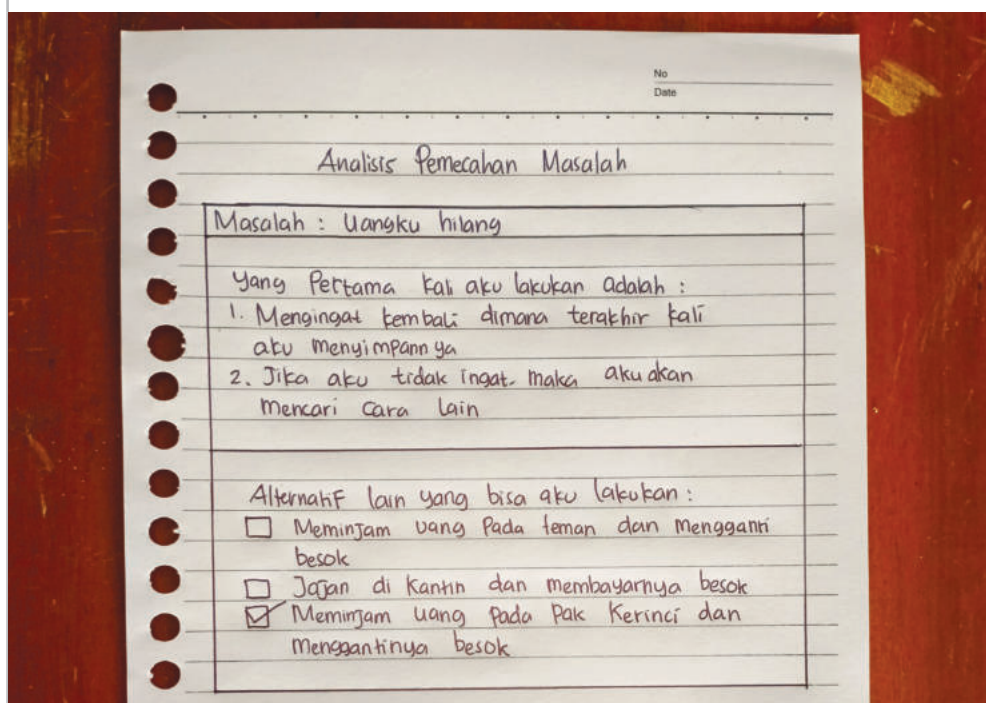 No
Date
Analisis Pemecahan Masalah
Masalah : Uangku hilang
Yang Pertama kali aku lakukan adalah :
1. Mengingat kembali dimana terakhir kali
aku menyimpannya
2. Jika aku tidak ingat. maka aku akan
mencari cara lain
Alternatif lain yang bisa aku lakukan :
Meminjam uang Pada teman dan mengganti
besok
Jajan di Kantin dan membayarnya besok
Meminjam uang Pada Pak Kerinci dan
menggantinya besok